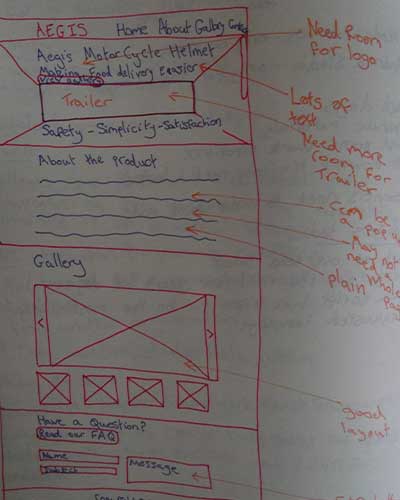 AEGIS Home About Gallery Contact
Need Room
for logo
Aegis MotorCycle Helmet
Making Food delivery easier
Lots of
text
Trailer
Need more
room for
Trailer
Safety - Simplicity - Satisfaction
About the Product
Can be
a pop up
May not
need a
whole
Page
plain
Gallery
< >
good
layout
Have a Question?
Read our FAQ
Name
Subject
Message